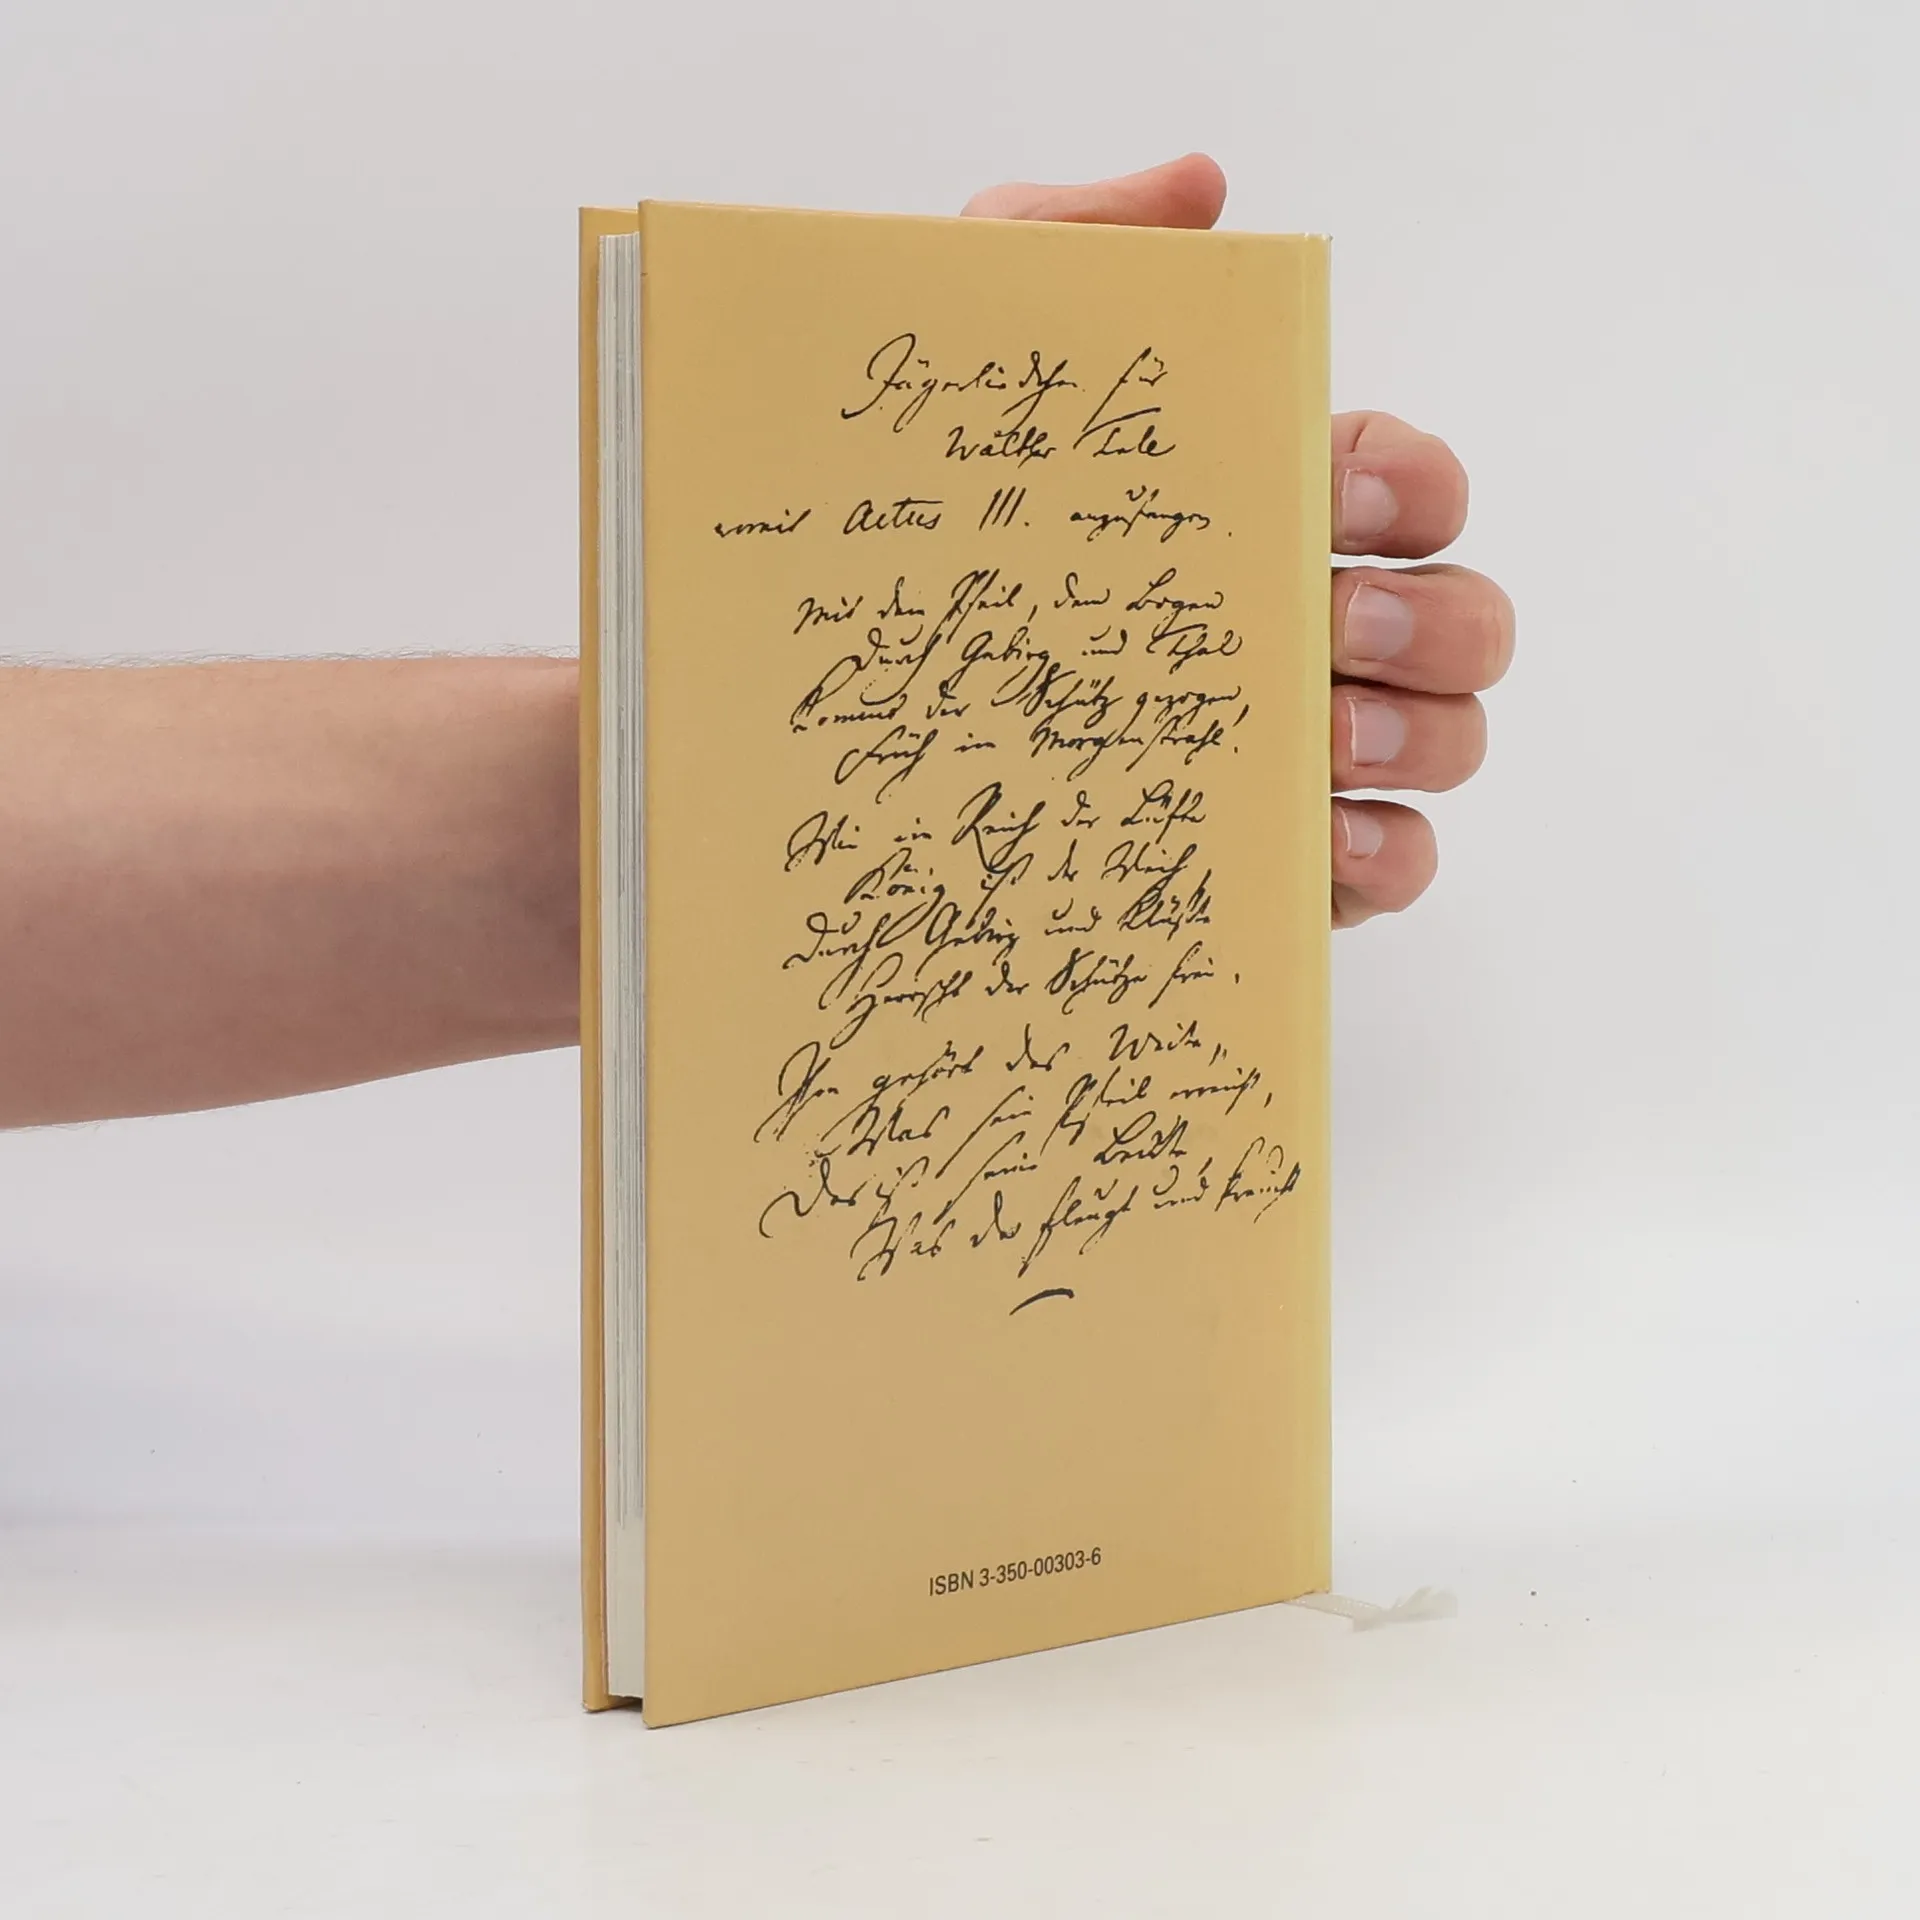 Jägerliedchen für
Walther Tell
womit Actus III. anzufangen.
Mit dem Pfeil, dem Bogen
Durch Gebirg und Thal
Kommt der Schütz gezogen,
Früh im Morgenstrahl.
Wie im Reich der Lüfte
König ist der Weih,
Durch Gebirg und Klüfte
Herrscht der Schütze frei.
Ihm gehört das Weite,
Was sein Pfeil erreicht,
Das ist seine Beute,
Was da fleugt und kreucht
ISBN 3-350-00303-6